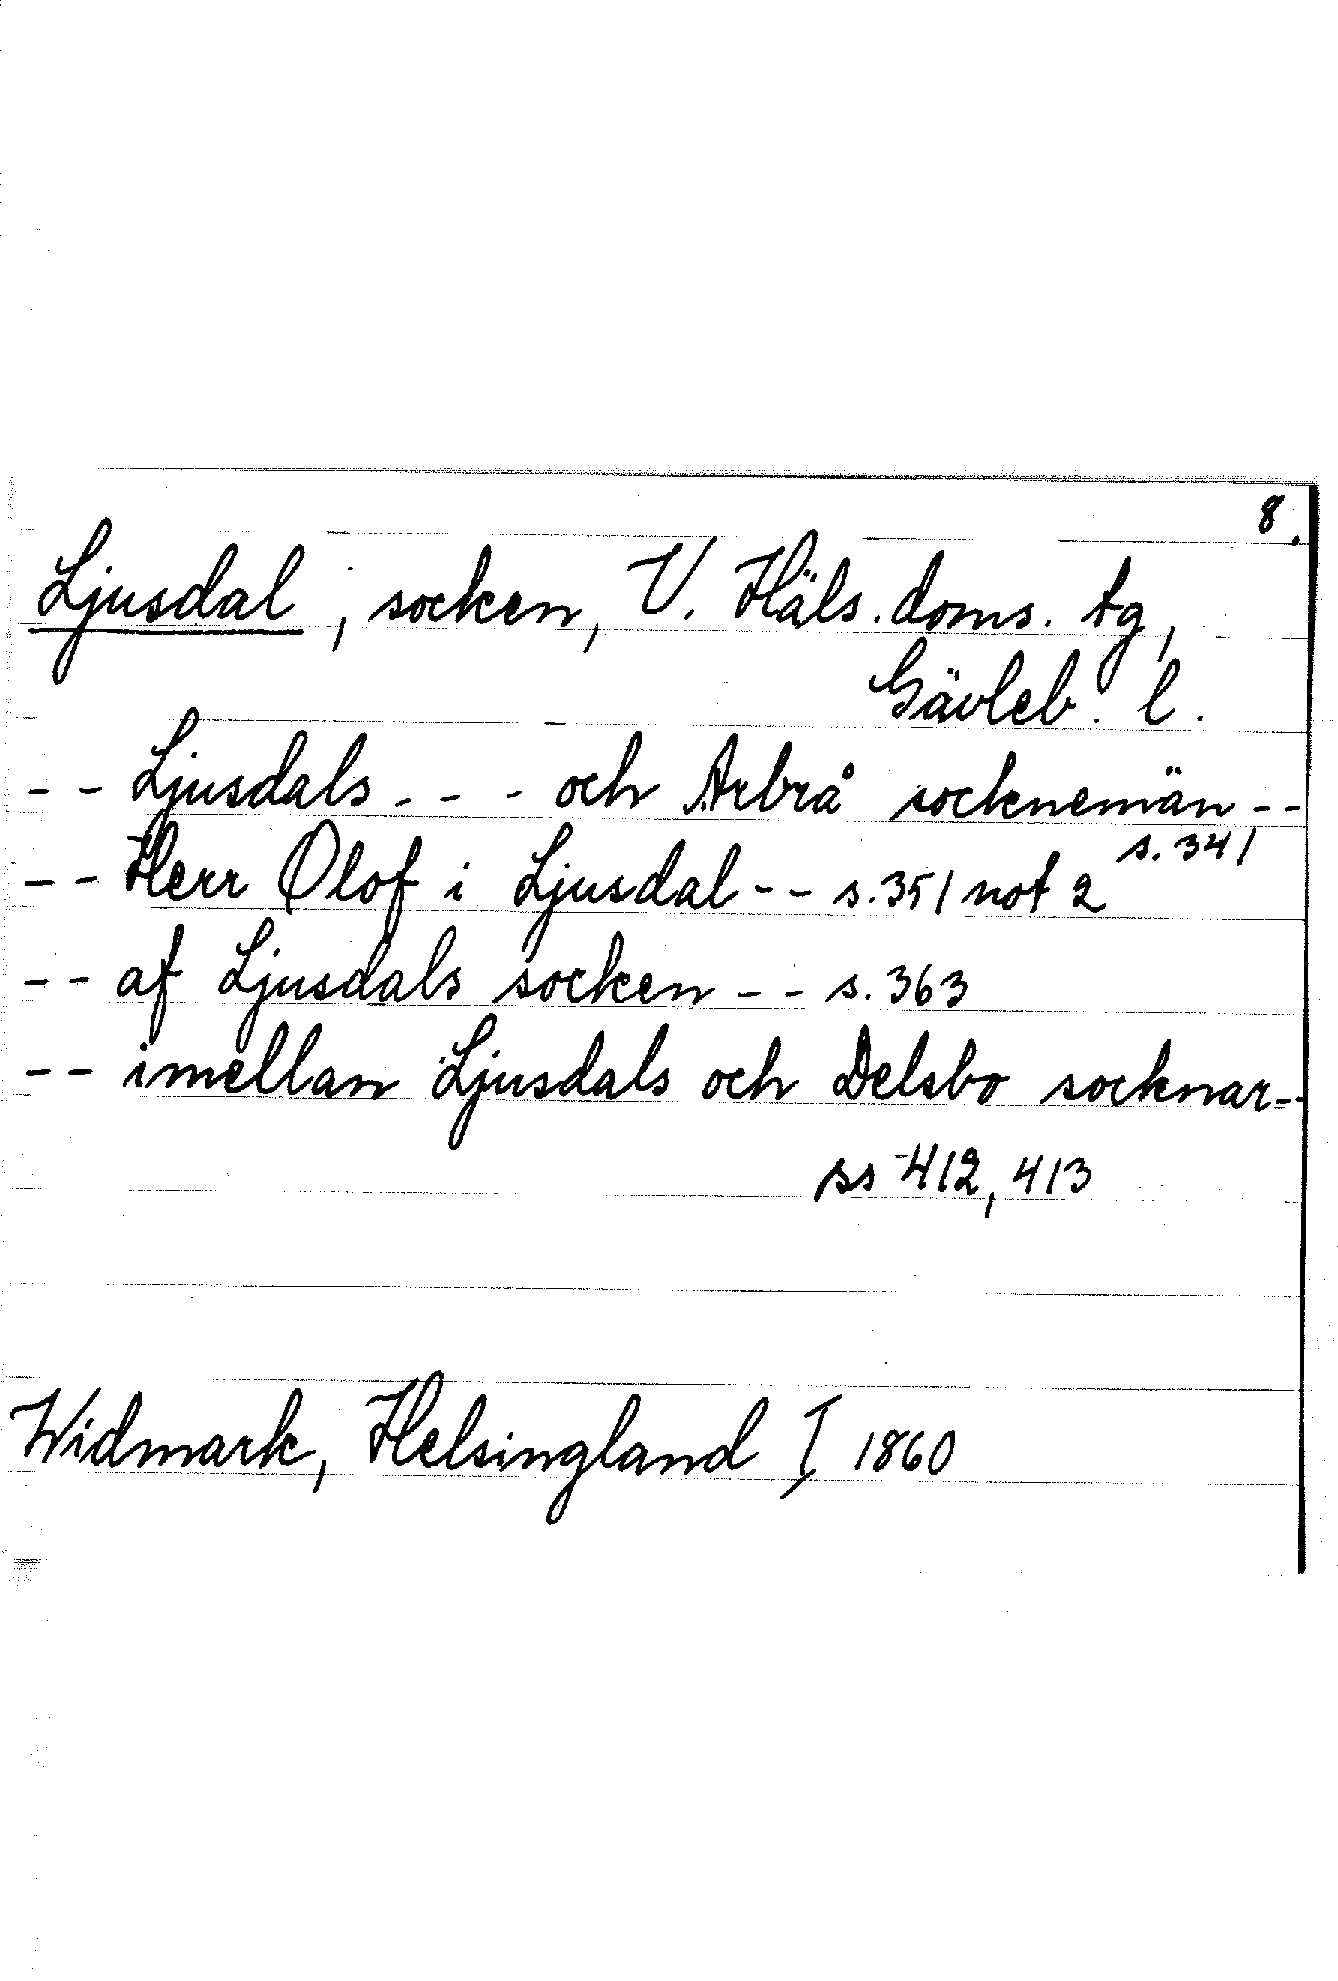 8.
Ljusdal, socken, V. Häls. doms. tg,
Gävleb. l.
-- Ljusdals --- och Arbrå socknemän --
s. 341
-- Herr Olof i Ljusdal -- s. 351 not 2
-- af Ljusdals socken -- s. 363
-- imellan Ljusdals och Delsbo socknar --
ss 412, 413
Widmark, Helsingland I 1860